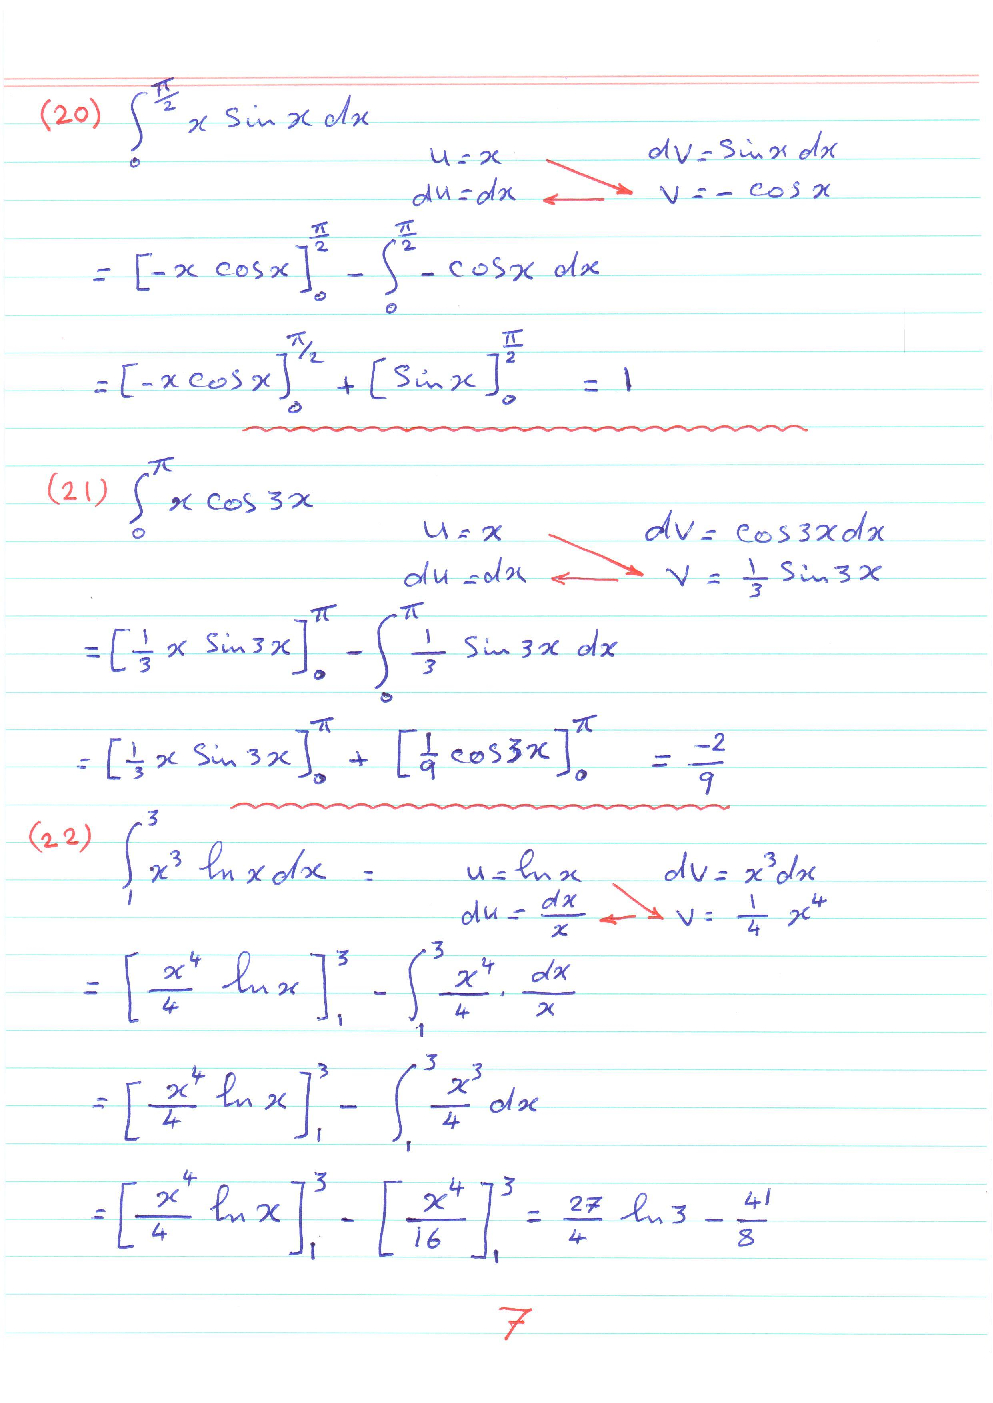 (20) ∫₀^{π/2} x sin x dx
u = x dv = sin x dx
du = dx v = - cos x
= [-x cos x]₀^{π/2} - ∫₀^{π/2} - cos x dx
= [-x cos x]₀^{π/2} + [sin x]₀^{π/2} = 1
(21) ∫₀^π x cos 3x
u = x dv = cos 3x dx
du = dx v = 1/3 sin 3x
= [1/3 x sin 3x]₀^π - ∫₀^π 1/3 sin 3x dx
= [1/3 x sin 3x]₀^π + [1/9 cos 3x]₀^π = -2/9
(22) ∫₁³ x³ ln x dx = u = ln x dv = x³ dx
du = dx/x v = 1/4 x⁴
= [x⁴/4 ln x]₁³ - ∫₁³ x⁴/4 . dx/x
= [x⁴/4 ln x]₁³ - ∫₁³ x³/4 dx
= [x⁴/4 ln x]₁³ - [x⁴/16]₁³ = 27/4 ln 3 - 41/8
7